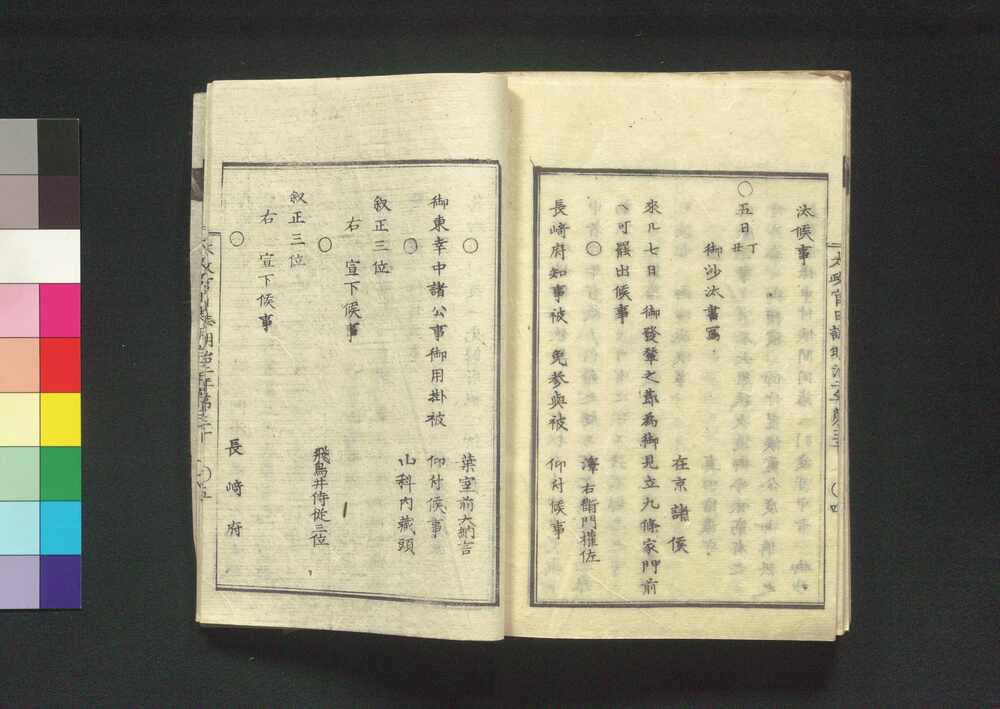 汰候事
○五日丁丑
御沙汰書写
在京諸侯
來ル七日 御發輦之節為御見立九條家門前
へ可罷出候事
○
澤右衛門權佐
長﨑府知事被 免参與被 仰付候事
○
葉室前大納言
御東幸中諸公事御用掛被 仰付候事
○
山科内藏頭
叙正三位
右 宣下候事
○
飛鳥井侍従三位
叙正三位
右 宣下候事
○
長﨑府